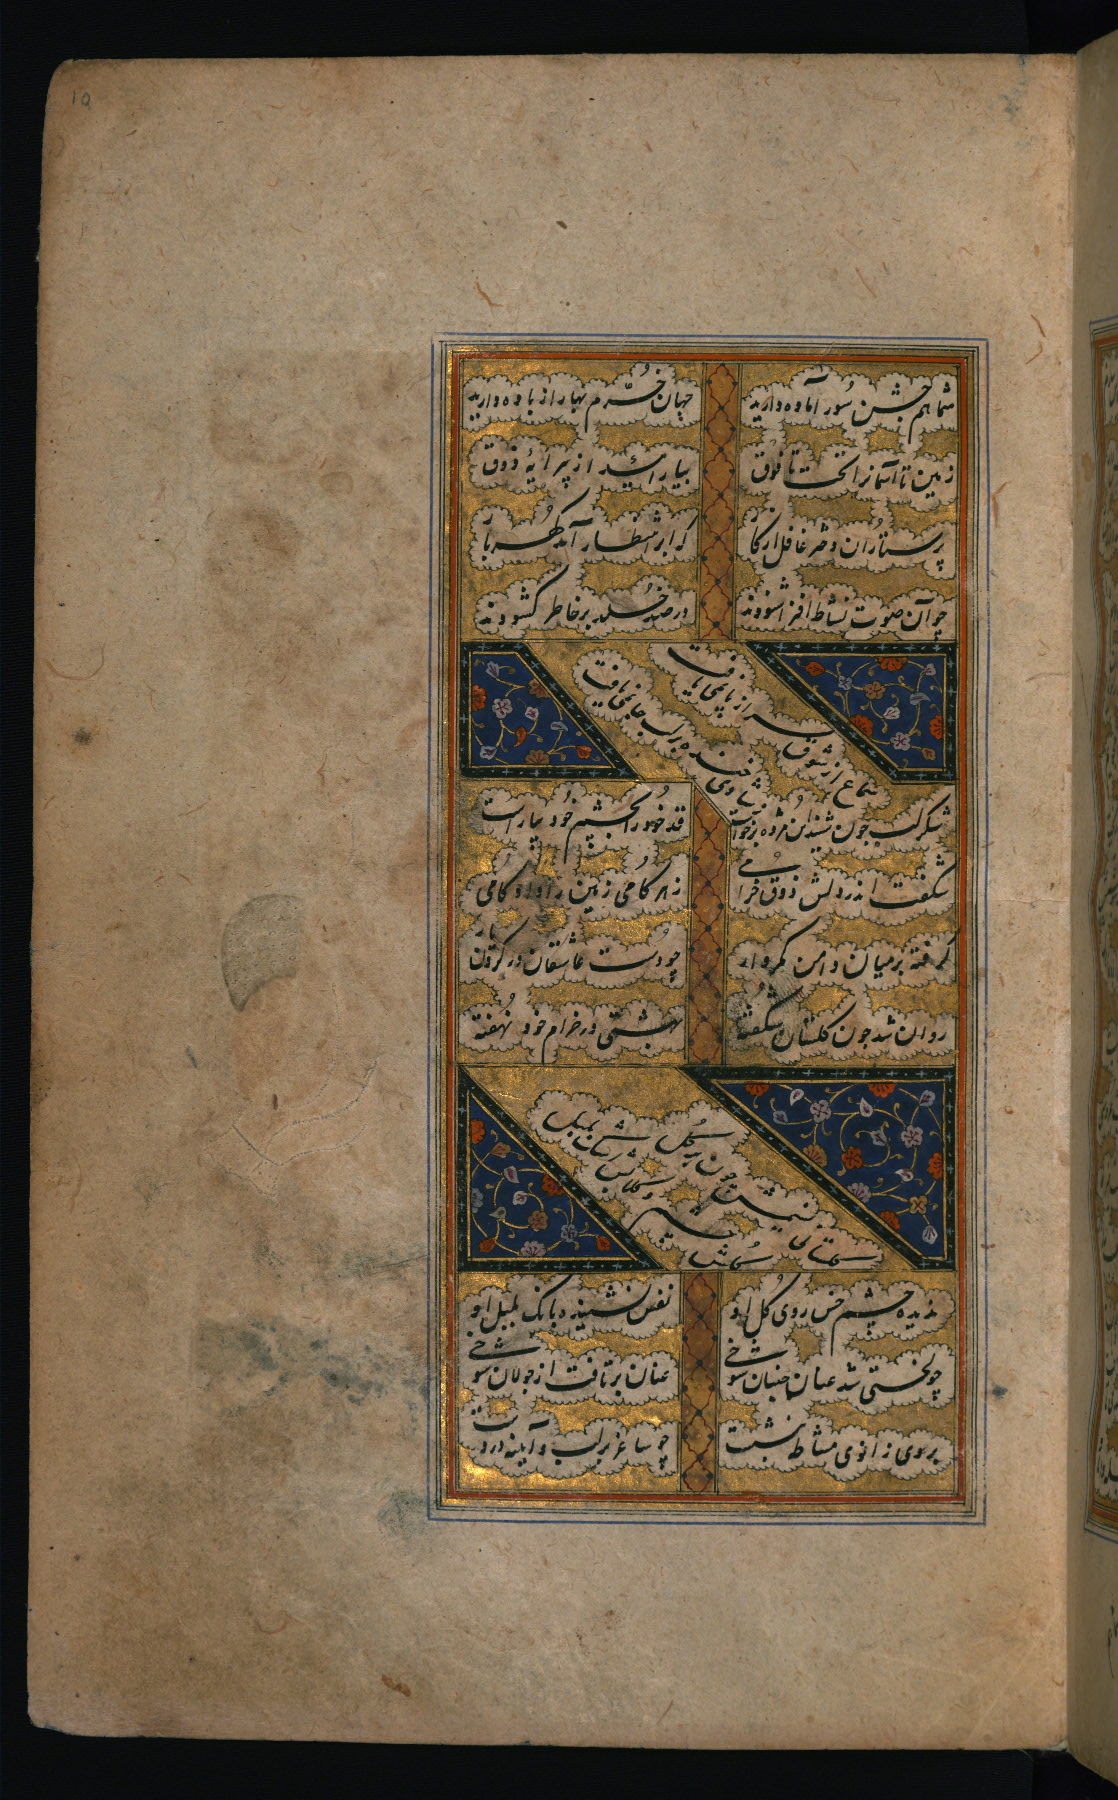 ۱۵
شما هم جشن سور آماده دارید
جهان خرم بهار از باده دارید
زمین تا آسمان از تخت تا فوق
بیارائید از پیرایهٔ ذوق
پرستاران و خدمه غافل از کار
که ابر انتظار آمد گهربار
چو آن صوت نشاط افزا شنودند
در صد خلد بر خاطر گشودند
سماع از شوق
از پا نمی‌یافت
ز شادی خنده بر لب جا نمی‌یافت
شکرلب چون شنید این مژده برخواست
قد خود را بچشم خود بیاراست
شکفت اندر دلش ذوق خرامی
ز هر گامی زمین را داد کامی
گرفته بر میان دامن کمروار
چو دست عاشقان در گردن یار
روان شد چون گلستان شکفته
بهشتی در خرام خود نهفته
گلستانی
چون بوی گل
بلبل
ندیده چشم خس روی گل او
نفس نشنیده بانگ بلبل او
چو لختی شد عنان جنبان شوخی
عنان برتافت از جولان شوخی
بروی زانوی مشاطه بنشست
چو ساغر بر لب و آیینه در دست